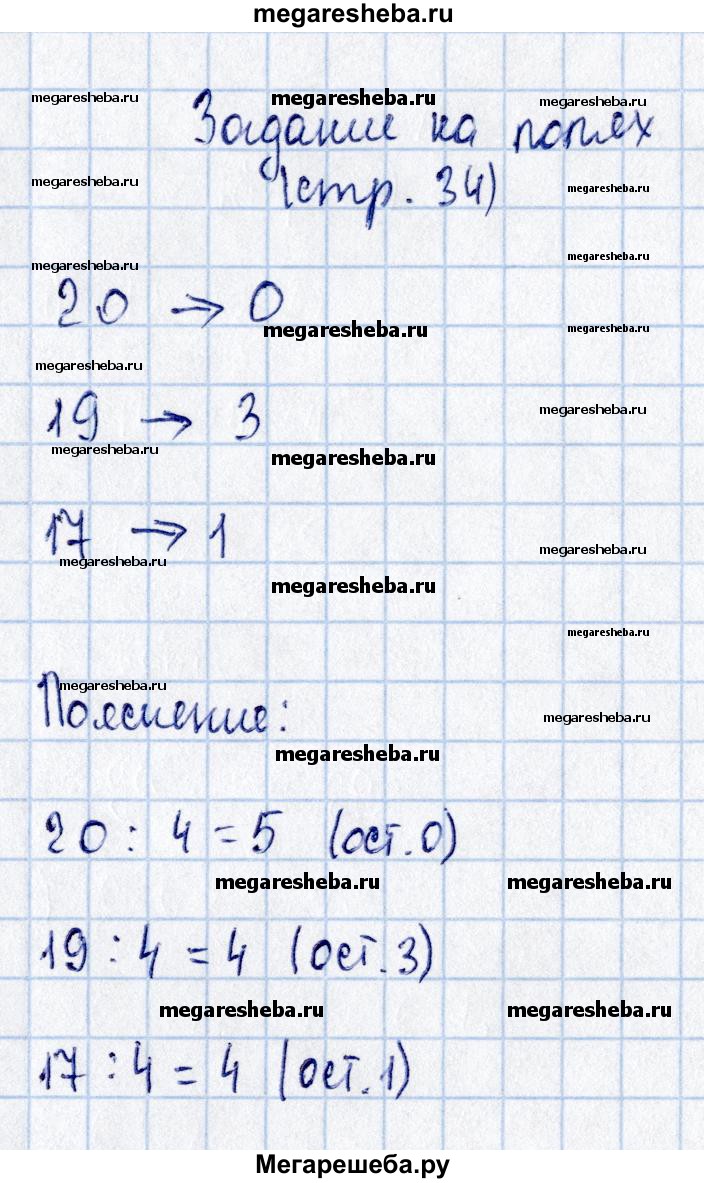 megaresheba.ru
megaresheba.ru megaresheba.ru megaresheba.ru
Задание на полях
megaresheba.ru megaresheba.ru
(стр. 34)
megaresheba.ru megaresheba.ru
20 → 0
megaresheba.ru megaresheba.ru
megaresheba.ru
19 → 3 megaresheba.ru
megaresheba.ru megaresheba.ru
17 → 1 megaresheba.ru
megaresheba.ru
megaresheba.ru
megaresheba.ru
megaresheba.ru
Пояснение: megaresheba.ru
megaresheba.ru
20 : 4 = 5 (ост. 0)
megaresheba.ru megaresheba.ru
19 : 4 = 4 (ост. 3)
megaresheba.ru megaresheba.ru
17 : 4 = 4 (ост. 1)
Мегарешеба.ру